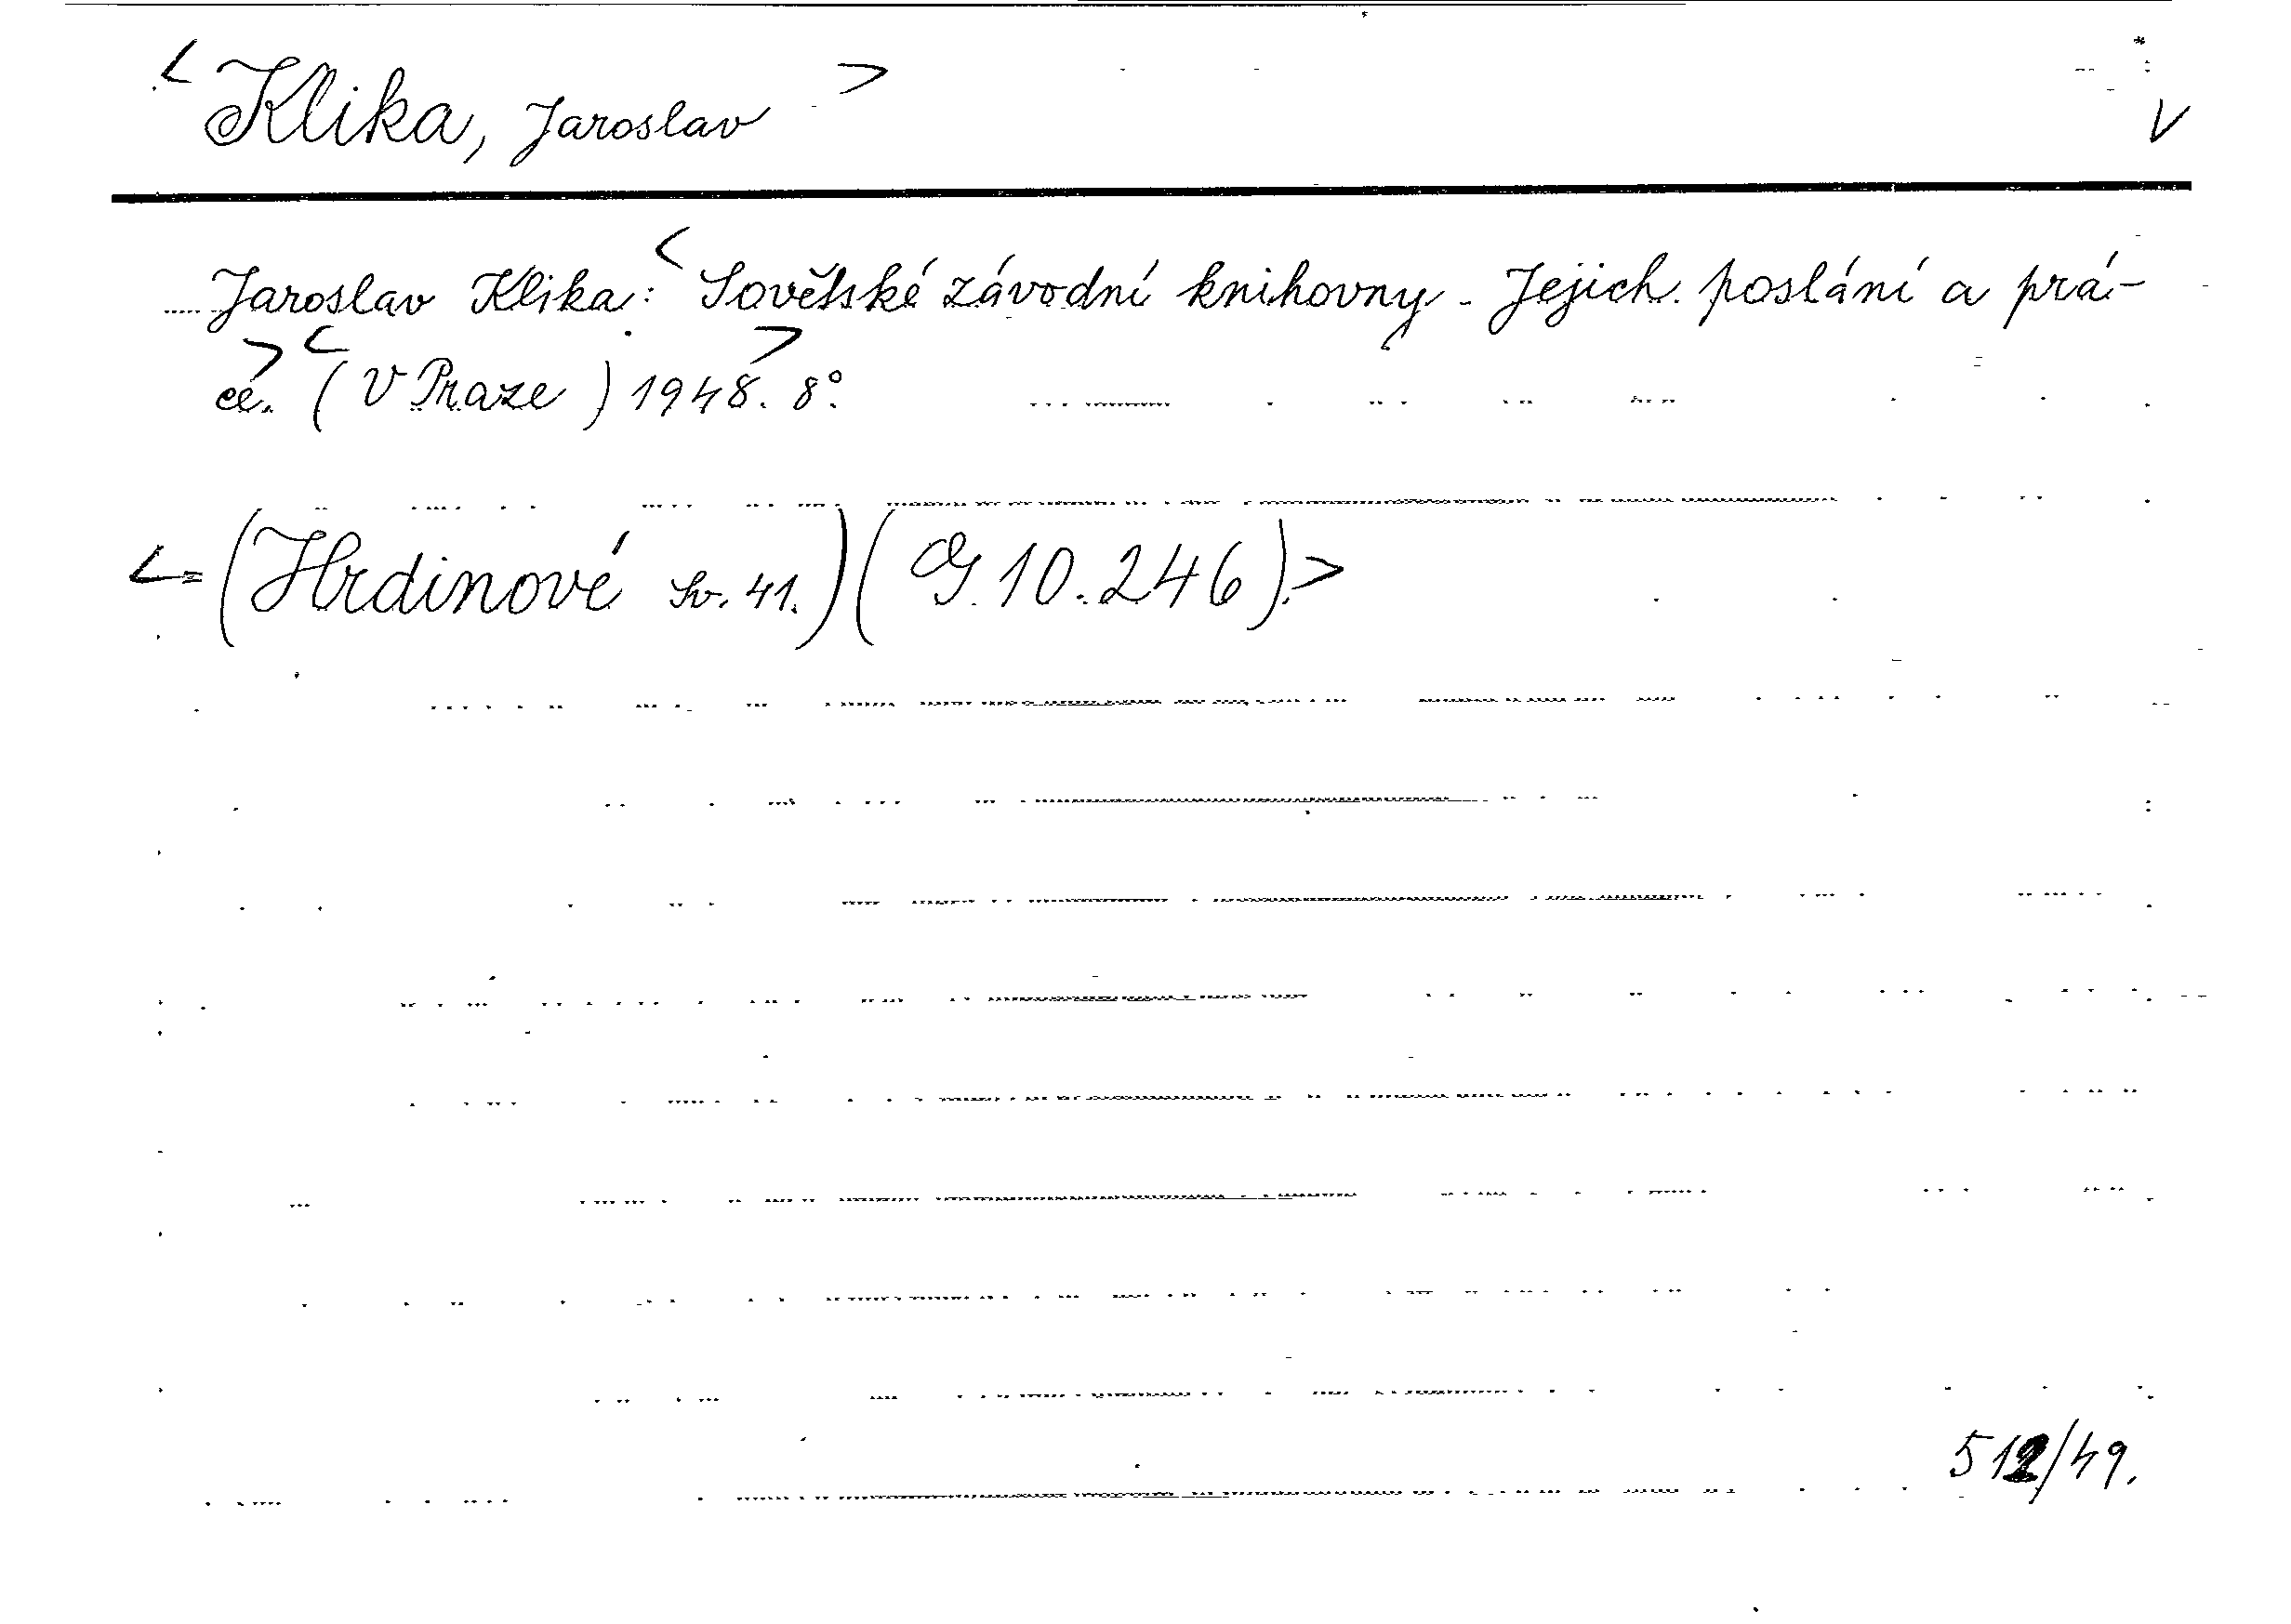 <Klika, Jaroslav>
V
Jaroslav Klika: <Sovětské závodní knihovny - Jejich poslání a prá-
cé.> <(V Praze) 1948.> 8°.
<=(Hrdinové Sv. 41.)(G 10.246)>
512/49.